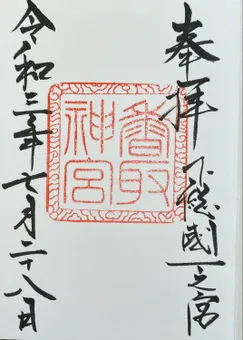 奉拝
下総國一之宮
香取
神宮
令和三年七月二十八日